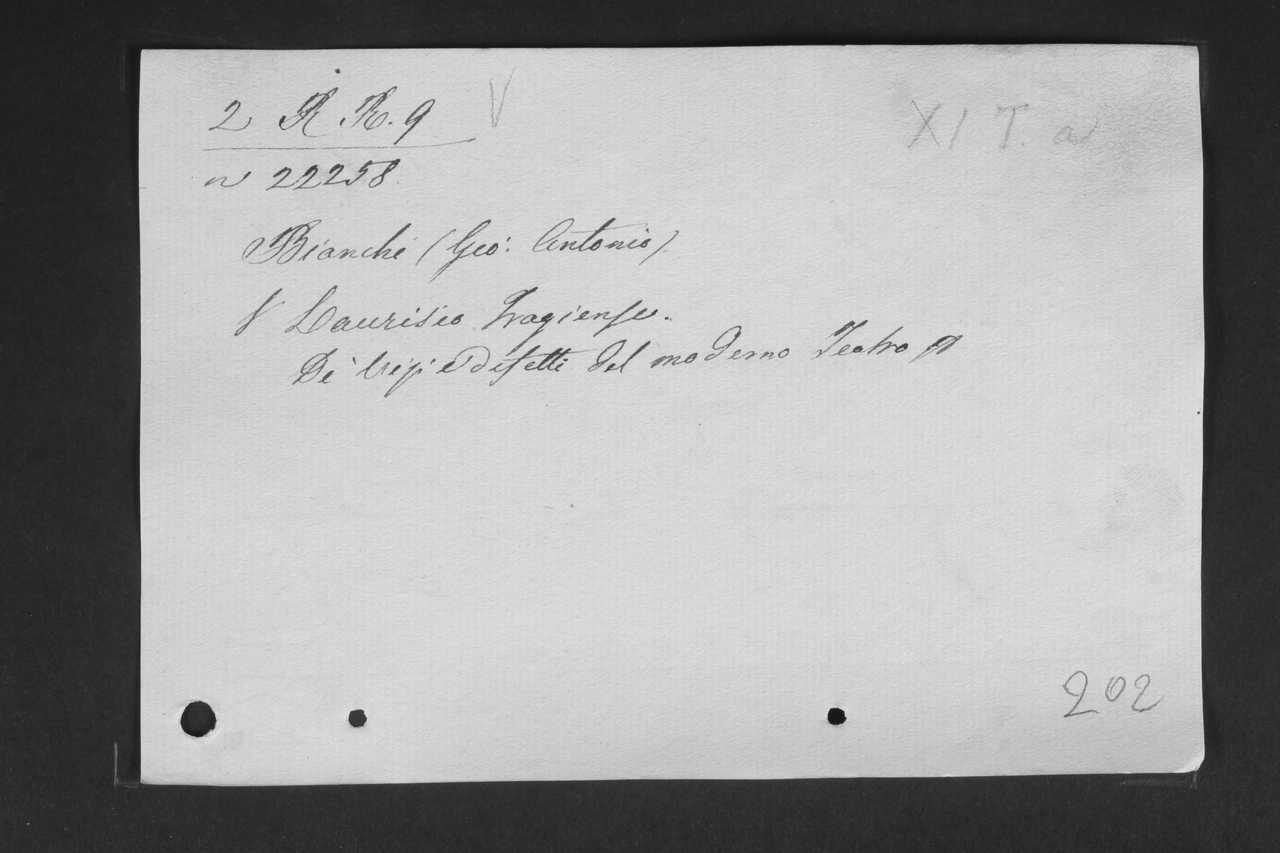 2 R R. 9 V
XI T. a
n 22258.
Bianchi (Gio: Antonio).
V Laurisio Tragiense.
De' Vizj e Difetti del moderno Teatro
202